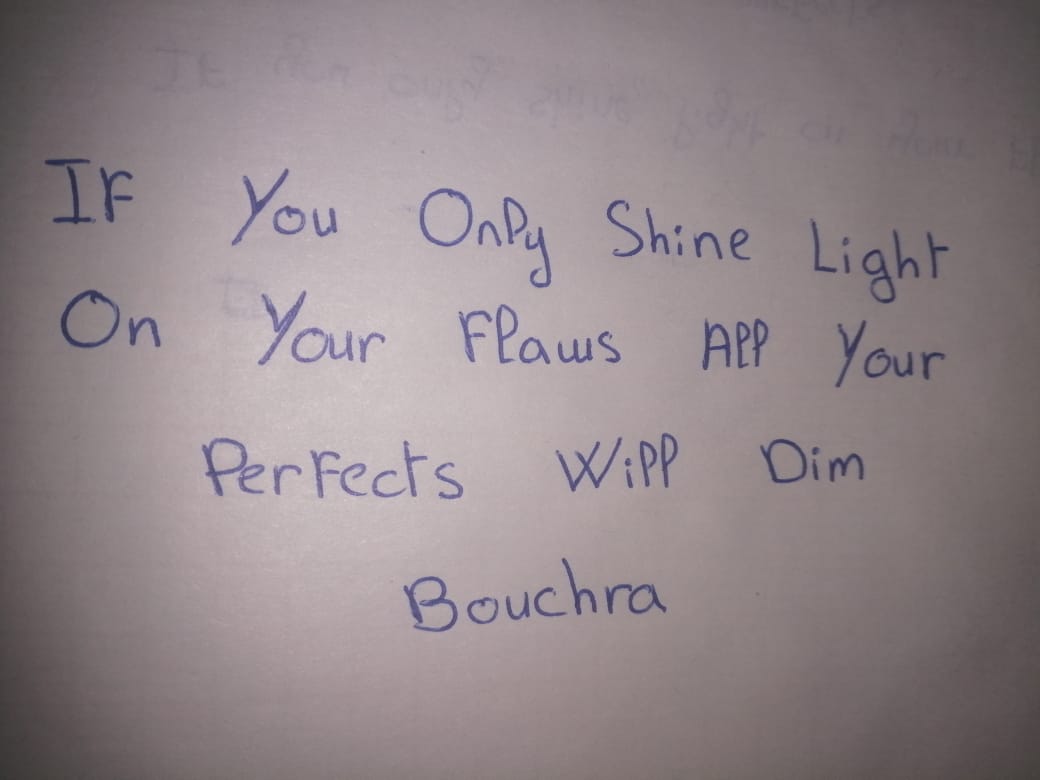 If You Only Shine Light
On Your Flaws All Your
Perfects Will Dim
Bouchra